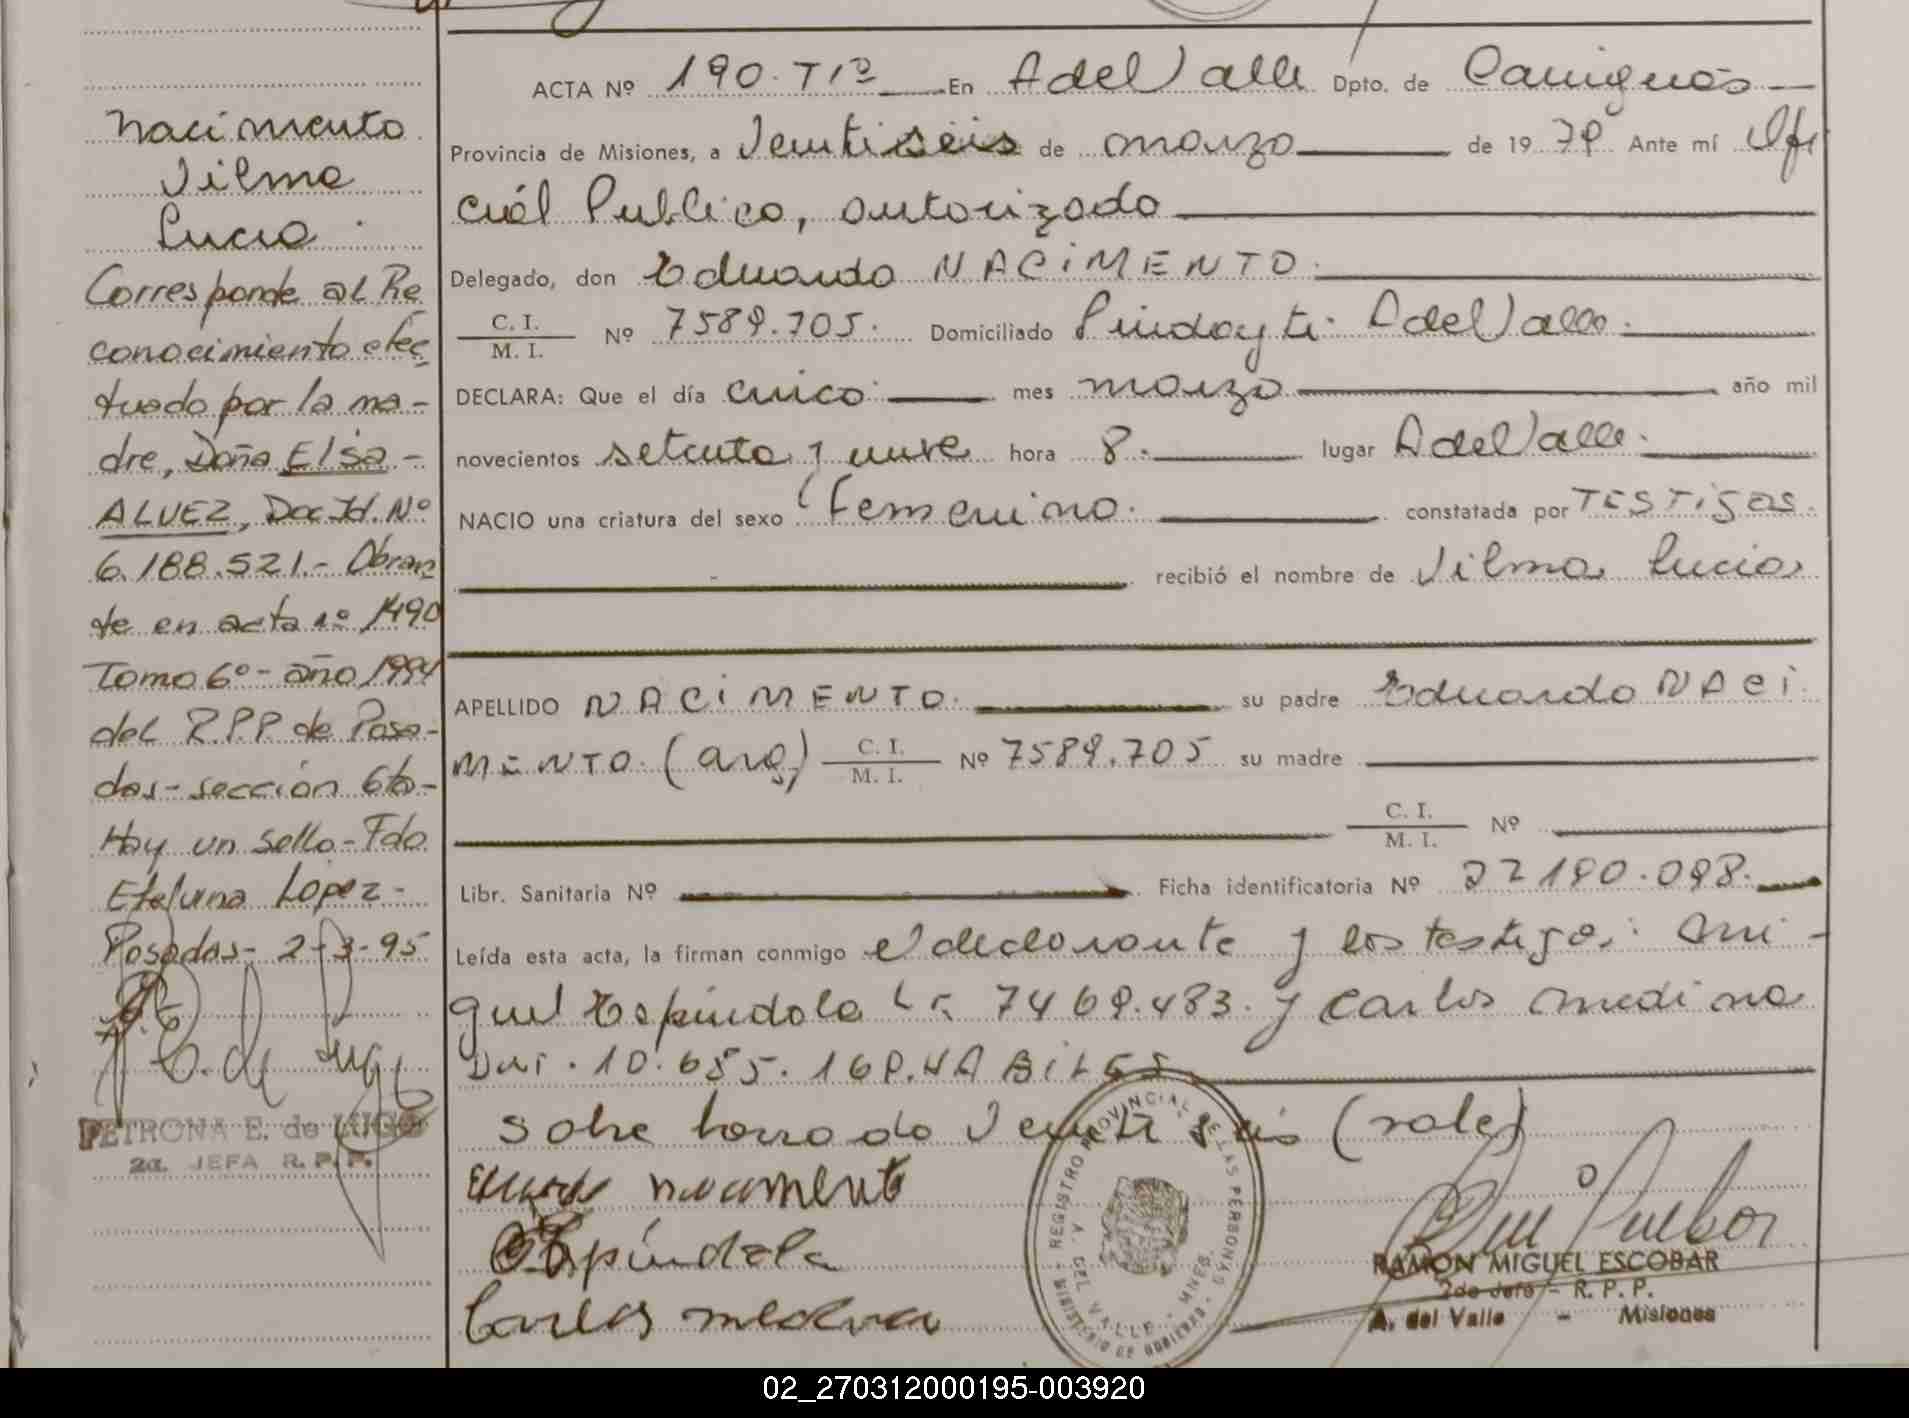 Nacimento
Vilma
Lucia
Corresponde al Re
conocimiento efec
tuado por la ma-
dre, Doña Elsa -
ALVEZ, Doc Id. Nº
6.188.521.- Obran
te en acta nº 1490
Tomo 6º - año 1994
del R.P.P de Posa-
das - sección 6ta -
Hay un sello - Fdo
Etelvina López -
Posadas - 2-3-95
PETRONA E. de LUGO
2a. JEFA R. P. P.
ACTA Nº 190. Tº En A del Valle Dpto. de Cainguás
Provincia de Misiones, a Veintiseis de marzo de 19 79 Ante mí Ofi
cial Publico, autorizado
Delegado, don Eduardo NACIMENTO.
C. I.
M. I. Nº 7589.705. Domiciliado Pindayti. A del Valle.
DECLARA: Que el día cinco mes marzo año mil
novecientos setenta y nueve hora 8. lugar A del Valle.
NACIO una criatura del sexo Femenino. constatada por TESTigos.
recibió el nombre de Vilma Lucia
APELLIDO NACIMENTO. su padre Eduardo NACI
MENTO. (arg) C. I.
M. I. Nº 7589.705 su madre
C. I.
M. I. Nº
Libr. Sanitaria Nº Ficha identificatoria Nº 27190.098.
Leída esta acta, la firman conmigo el declarante y los testigos: Mi-
guel Espíndola 7469.483. y Carlos Medina
Dni. 10.685.169. HABILES
Sobre borrado Veintiseis (vale)
Eduardo nacimento
Espíndola
Carlos medina
REGISTRO PROVINCIAL DE LAS PERSONAS
A. DEL VALLE - MNES.
MINISTERIO DE GOBIERNO
RAMON MIGUEL ESCOBAR
2do Jefe - R. P. P.
A. del Valle - Misiones
02_270312000195-003920